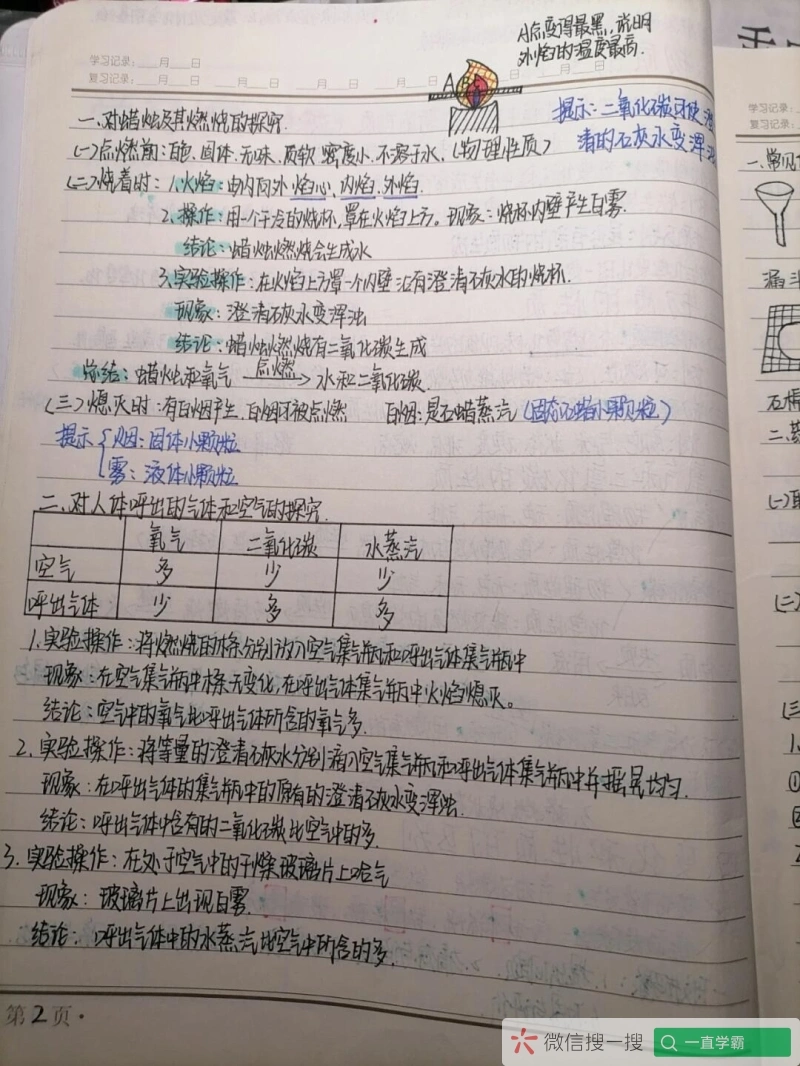 A点变得最黑,说明
外焰的温度最高.
学习记录: 月 日
复习记录: 月 日 月 日 月 日 月 日
A B
提示:二氧化碳可使澄
清的石灰水变浑浊
一、对蜡烛及其燃烧的探究.
(一)点燃前:白色.固体.无味.质软.密度小.不溶于水.(物理性质)
(二)烧着时:1.火焰:由内向外 焰心、内焰、外焰.
2.操作:用一个干冷的烧杯,罩在火焰上方。现象:烧杯内壁产生白雾.
结论:蜡烛燃烧会生成水
3.实验操作:在火焰上方罩一个内壁沾有澄清石灰水的烧杯.
现象:澄清石灰水变浑浊
结论:蜡烛燃烧有二氧化碳生成
总结:蜡烛和氧气 点燃 → 水和二氧化碳.
(三)熄灭时:有白烟产生.白烟可被点燃 白烟:是石蜡蒸汽(固态石蜡小颗粒)
提示 烟:固体小颗粒
雾:液体小颗粒
二、对人体呼出的气体和空气的探究.
氧气 二氧化碳 水蒸汽
空气 多 少 少
呼出气体 少 多 多
1.实验操作:将燃烧的木条分别放入空气集气瓶和呼出气体集气瓶中
现象:在空气集气瓶中木条无变化,在呼出气体集气瓶中火焰熄灭。
结论:空气中的氧气比呼出气体所含的氧气多.
2.实验操作:将等量的澄清石灰水分别滴入空气集气瓶和呼出气体集气瓶中并摇晃均匀.
现象:在呼出气体的集气瓶中的原有的澄清石灰水变浑浊.
结论:呼出气体中含有的二氧化碳比空气中的多.
3.实验操作:在处于空气中的干燥玻璃片上哈气
现象:玻璃片上出现白雾.
结论:呼出气体中的水蒸汽比空气中所含的多.
第2页·
学习记录:
复习记录:
一、常见
漏斗
二、
(一)
(二)
(三)
1.
①
微信搜一搜 一直学霸